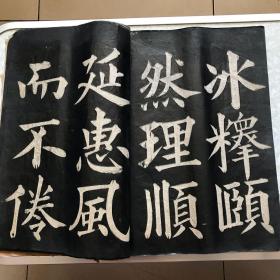 冰釋頤
然理順
延惠風
而不倦